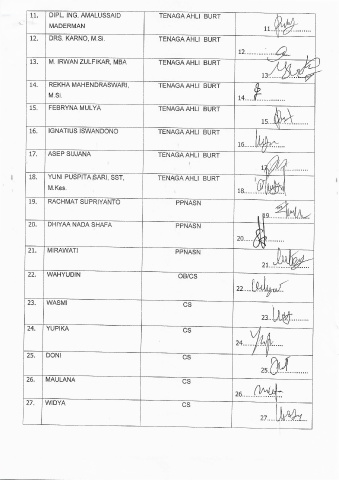 11. DIPL. ING. AMALUSSAID TENAGA AHLI BURT
MADERMAN 11.
12. DRS. KARNO, M.SI. TENAGA AHLI BURT 12
13. M. IRWAN ZULFIKAR, MBA TENAGA AHLI BURT 13
14. REKHA MAHENDRASWARI, TENAGA AHLI BURT
M.SI. 14
15. FEBRYNA MULYA TENAGA AHLI BURT 15.
16. IGNATIUS ISWANDONO TENAGA AHLI BURT 16.
17. ASEP SUJANA TENAGA AHLI BURT 17
18. YUNI PUSPITA SARI, SST, TENAGA AHLI BURT
M.Kes. 18
19. RACHMAT SUPRIYANTO PPNASN 19
20. DHIYAA NADA SHAFA PPNASN 20.
21. MIRAWATI PPNASN 21
22. WAHYUDIN OB/CS 22
23. WASMI CS 23.
24. YUPIKA CS 24.
25. DONI CS 25.
26. MAULANA CS 26
27. WIDYA CS 27.